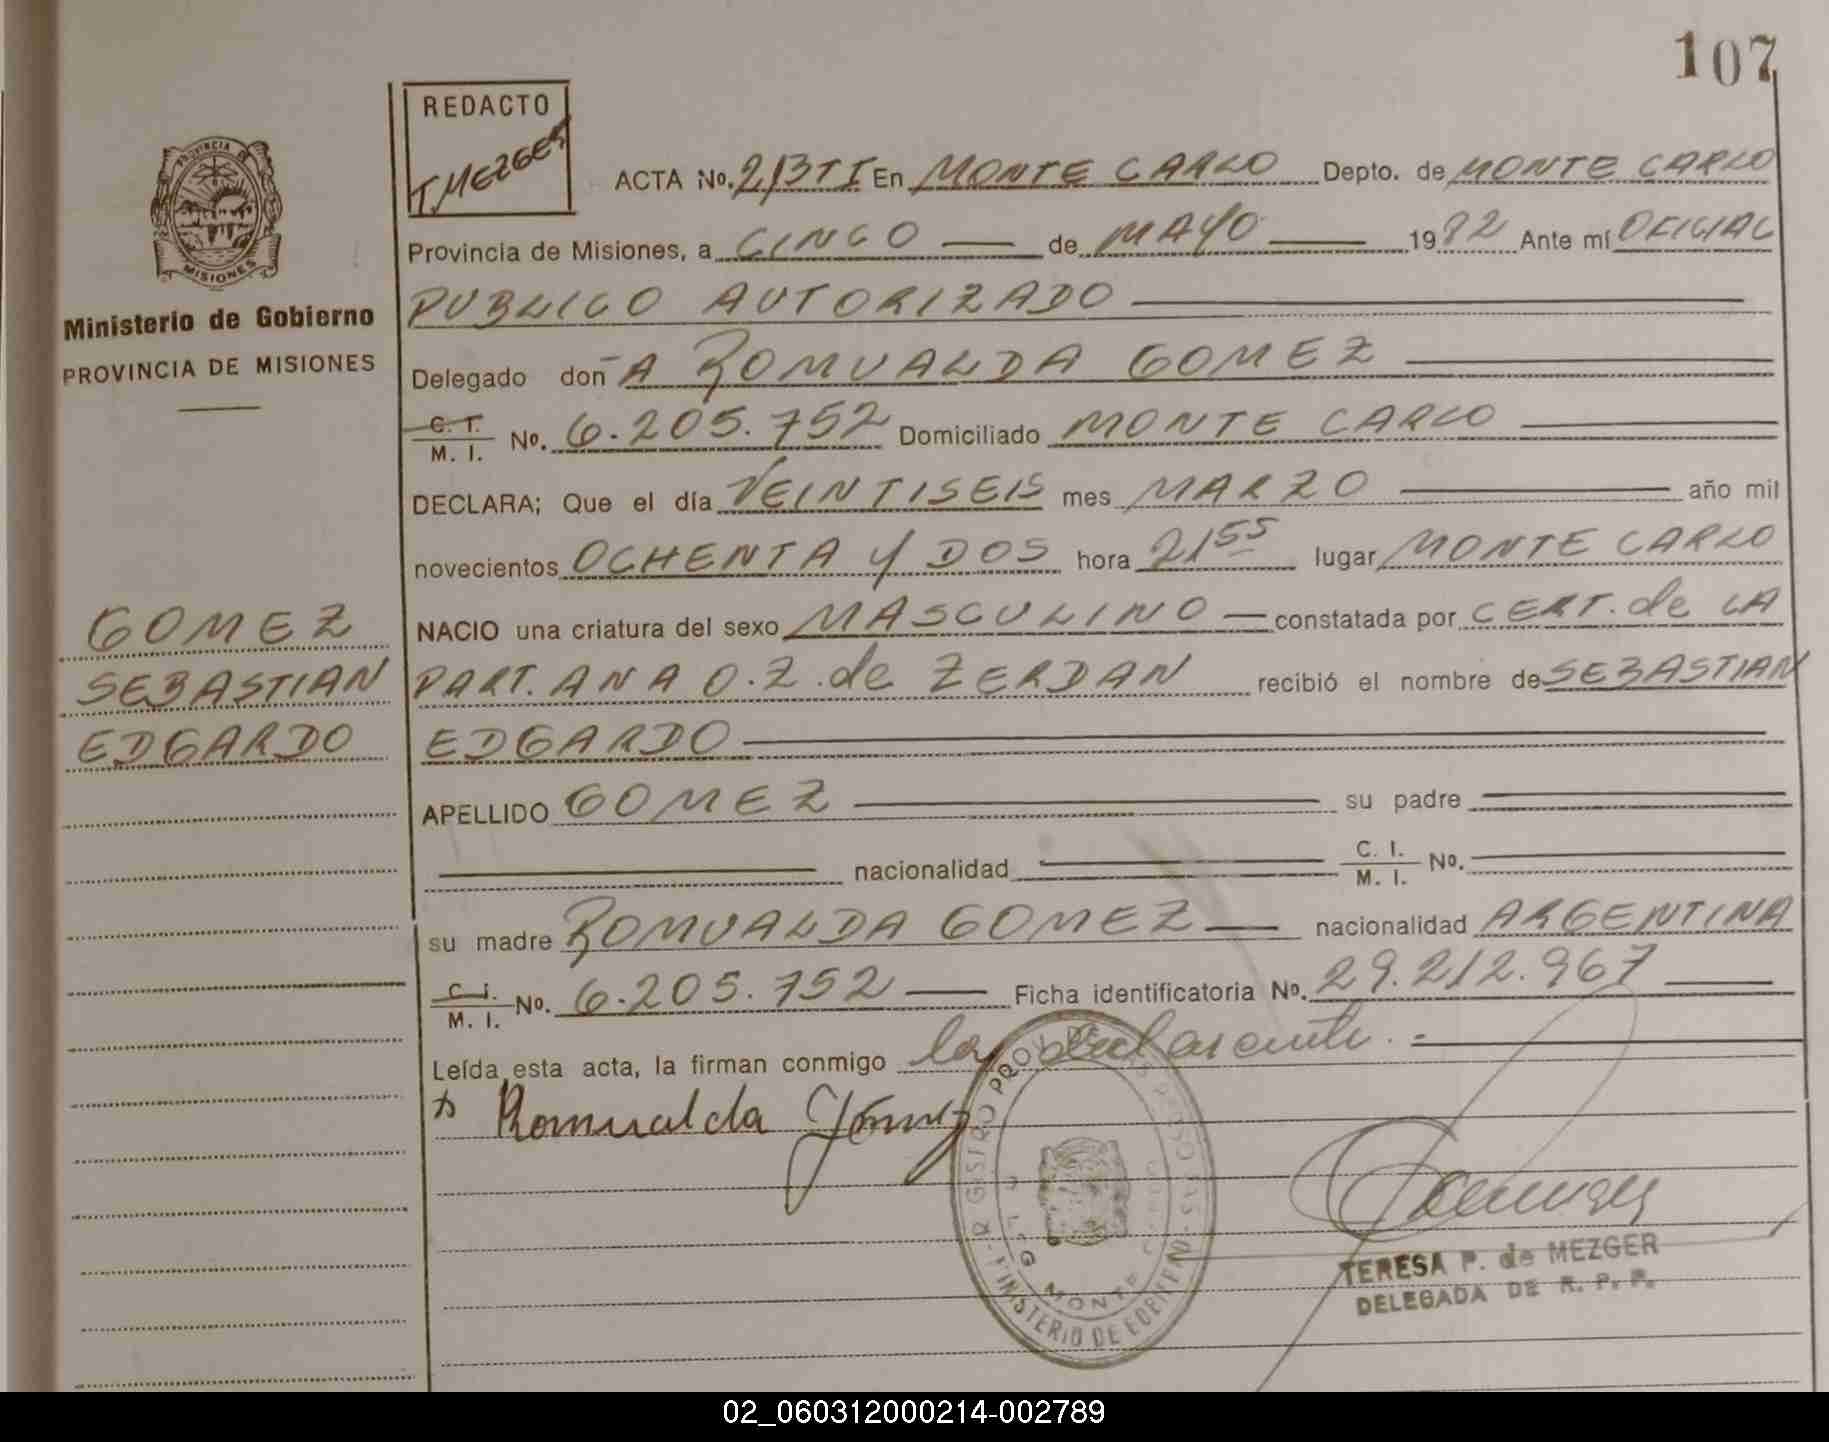 107
REDACTO
T. MEZGER
PROVINCIA DE
MISIONES
Ministerio de Gobierno
PROVINCIA DE MISIONES
ACTA No. 213 TI En MONTE CARLO Depto. de MONTE CARLO
Provincia de Misiones, a CINCO de MAYO 1982 Ante mí OFICIAL
PUBLICO AUTORIZADO
Delegado doñA ROMUALDA GOMEZ
C. I. M. I. No. 6.205.752 Domiciliado MONTE CARLO
DECLARA; Que el día VEINTISEIS mes MARZO año mil
novecientos OCHENTA Y DOS hora 21 55 lugar MONTE CARLO
NACIO una criatura del sexo MASCULINO constatada por CERT. de LA
PART. ANA O. Z. de ZERDAN recibió el nombre de SEBASTIAN
EDGARDO
GOMEZ
SEBASTIAN
EDGARDO
APELLIDO GOMEZ su padre
nacionalidad C. I. M. I. No.
su madre ROMUALDA GOMEZ nacionalidad ARGENTINA
C. I. M. I. No. 6.205.752 Ficha identificatoria No. 29.212.967
Leída esta acta, la firman conmigo la declarante.-
Romualda Gómez
TERESA P. de MEZGER
DELEGADA DE R. P. P.
MONTE
02_060312000214-002789